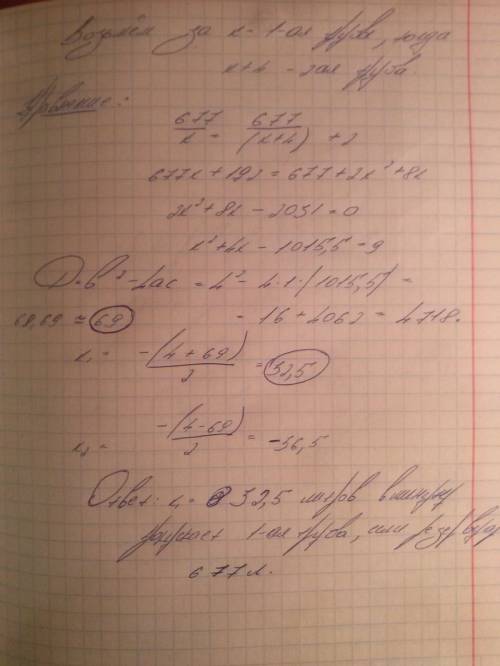 Возьмём за x - 1-ая труба, тогда
x+4 - 2ая труба.
Уравнение:
677/x = 677/(x+4) + 2
677x + 192 = 677 + 2x² + 8x
2x² + 8x - 2031 = 0
x² + 4x - 1015,5 = 9
D = b² - 4ac = 4² - 4·1·(1015,5) =
68,69 ≈ 69 = 16 + 4062 = 4718.
x₁ = -(4+69)/2 = 32,5
x₂ = -(4-69)/2 = -36,5
Ответ: x₁ = 32,5 литров в минуту
пропускает 1-ая труба, если резервуар
677 л.